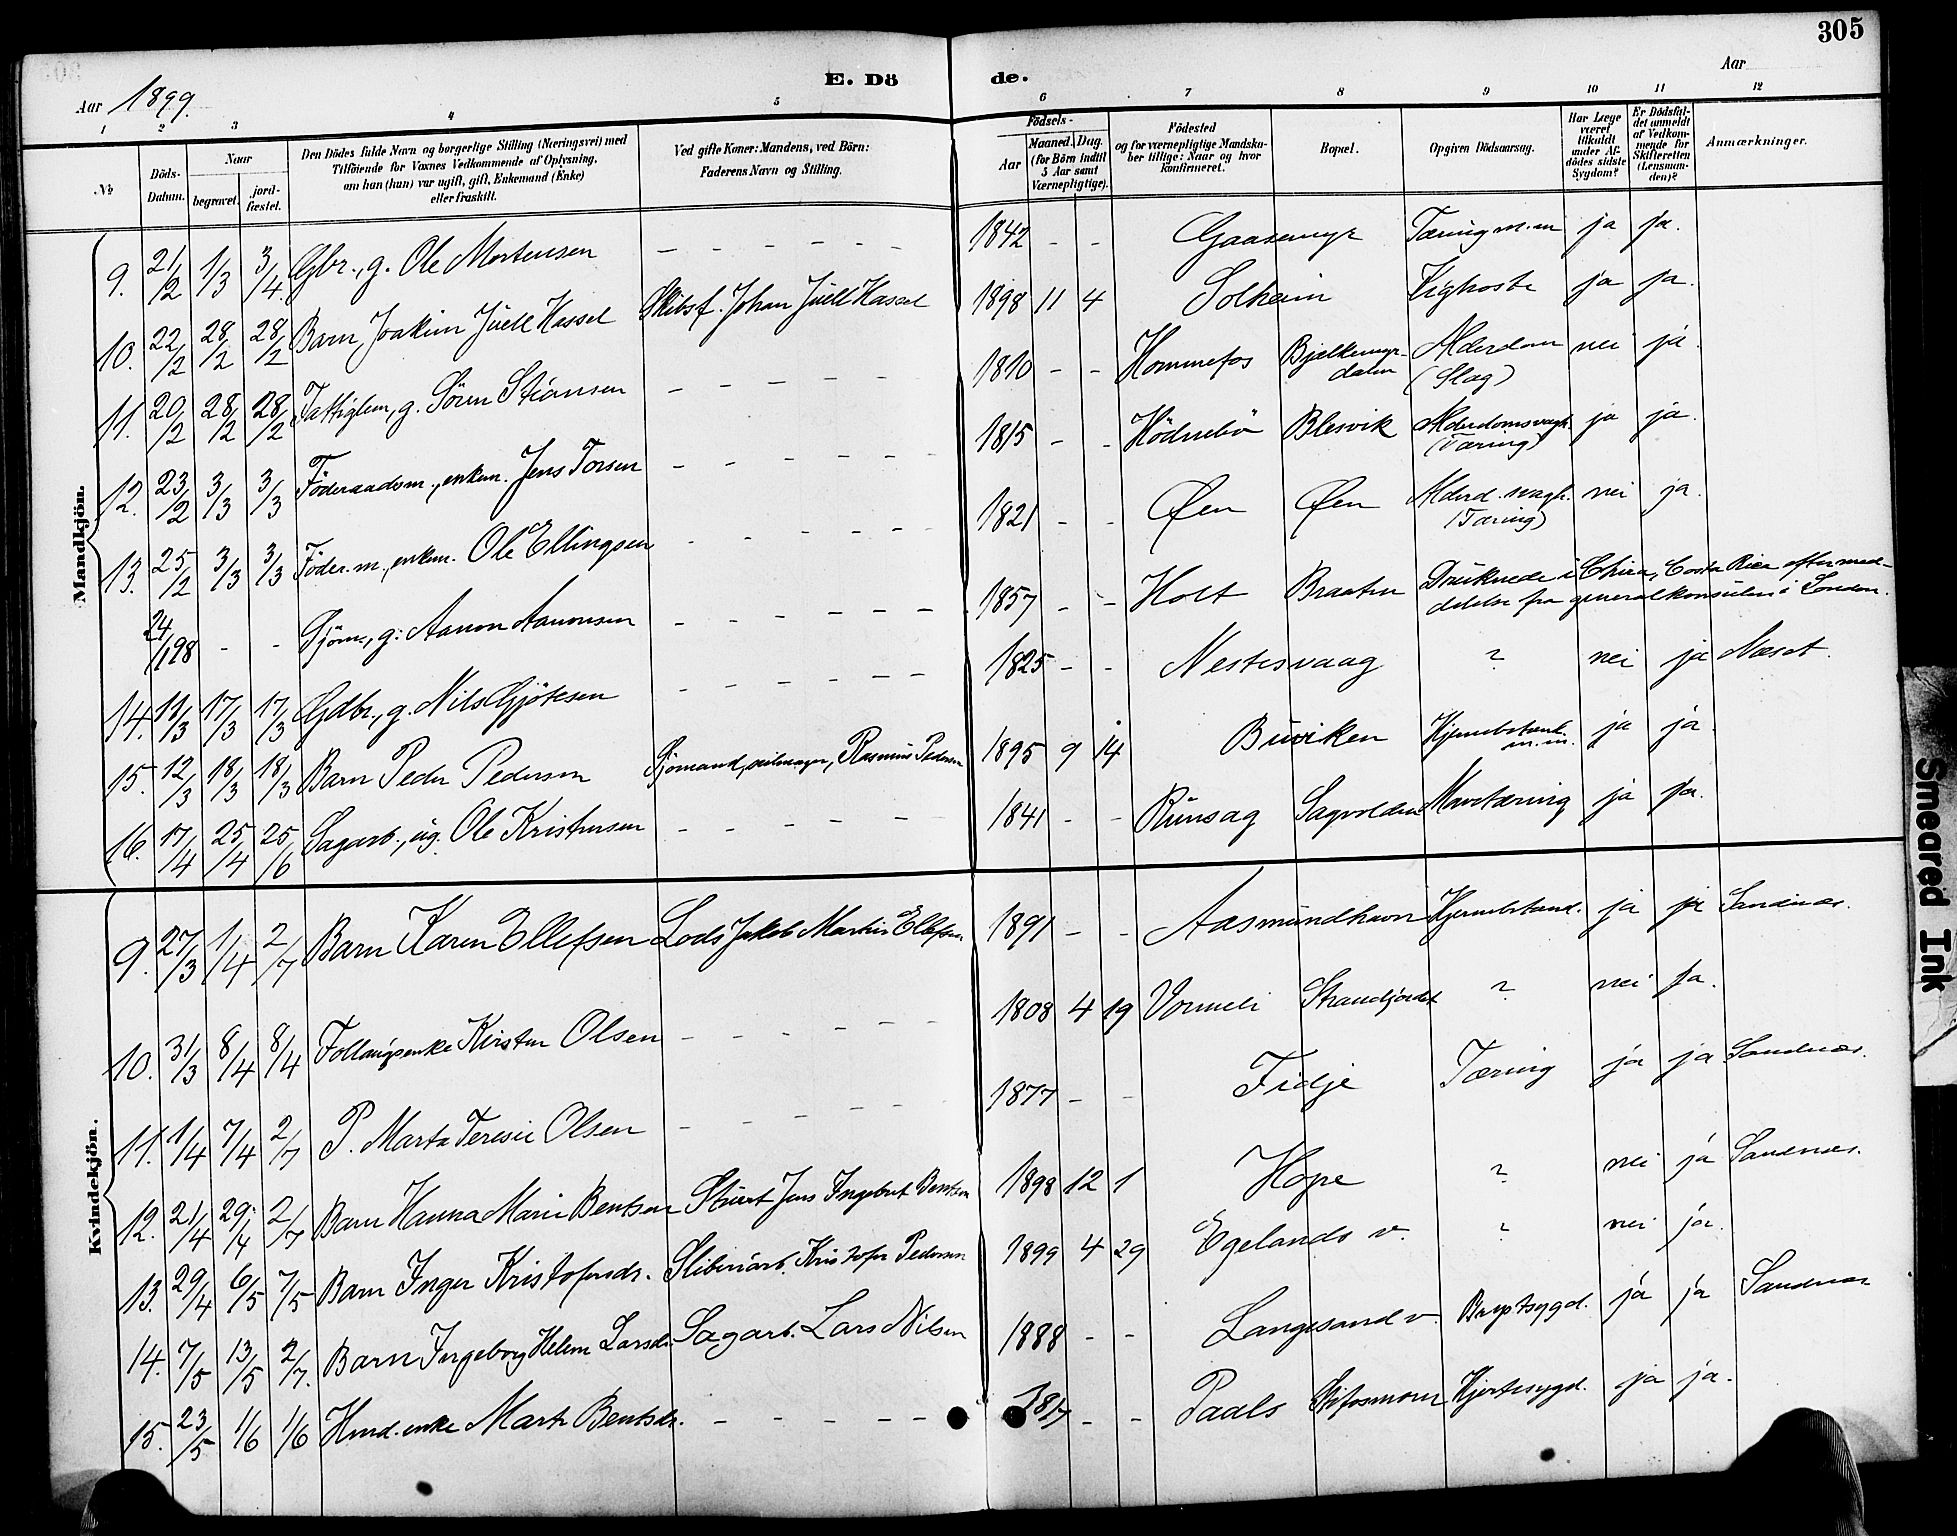 305
Aar 1899.
E. Dö de.
Aar
1 2 3 4 5 6 7 8 9 10 11 12
No
Döds-Datum.
Naar
begravet.
jord-fæstet.
Den Dödes fulde Navn og borgerlige Stilling (Næringsvei) med
Tilföiende for Voxnes Vedkommende af Oplysning,
om han (hun) var ugift, gift, Enkemand (Enke)
eller fraskilt.
Ved gifte Koner: Mandens, ved Börn:
Faderens Navn og Stilling.
Födsels-
Aar
Maaned. Dag.
(for Börn indtil
5 Aar samt
Værnepligtige).
Födested
og for værnepligtige Mandska-
ber tillige: Naar og hvor
konfirmeret.
Bopæl.
Opgiven Dödsaarsag.
Har Læge
været
tilkaldt
under Af-
dödes sidste
Sygdom?
Er Dödsfal-
det anmeldt
af Vedkom-
mende for
Skifteretten
(Lensman-
den)?
Anmærkninger.
Mandkjön.
9. 21/2 1/3 3/4 Gbr., g. Ole Mortensen - - - - - - 1842 - - Gaasemyr Tæring m.m ja ja.
10. 22/2 28/2 28/2 Barn Joakim Juell Hassel Skibsf. Johan Juell Hassel 1898 11 4 Solheim Kighoste ja ja.
11. 20/2 28/2 28/2 Fattiglem, g. Sören Stiansen - - - - - - 1810 - - Hommefos Bjelkemyr-dalen Alderdom (Slag) nei ja.
12. 23/2 3/3 3/3 Föderaadsm., enkem. Jens Torsen - - - - - - 1815 - - Hödnebö Blesvik Alderdomssvagh. (Tæring) ja ja.
13. 25/2 3/3 3/3 Föder.m., enkem. Ole Ellingsen - - - - - - 1821 - - Øen Øen Alderd.svagh. (Tæring) nei ja.
24/1 98 - - Sjöm., g. Aanon Aanonsen - - - - - - 1857 - - Holt Braaten Druknede i Chira, Costa Rica efter med-
delelse fra generalkonsulen i London.
14. 11/3 17/3 17/3 Gdbr., g. Nils Gjötesen - - - - - - 1825 - - Nestesvaag ? nei ja Næset.
15. 12/3 18/3 18/3 Barn Peder Pedersen Sjömand, Rasmus Pedersen 1895 9 14 Buviken Hjernebetænd. m.m. ja ja.
16. 17/4 25/4 25/6 Sagarb., ug. Ole Kristensen - - - - - 1841 - - Runsag Sagvolden Mavetæring ja ja.
Kvindekjön.
9. 27/3 1/4 2/7 Barn Karen Ellefsen Lods Jakob Martin Ellefsen 1891 - - Aasmundhavn Hjernebetænd. ja ja Sandnæs.
10. 31/3 8/4 8/4 Kirsten Olsen - - - - - - 1808 4 19 Vormeli Strandjordet ? nei ja.
11. 1/4 7/4 2/7 P. Marta Teresie Olsen - - - - - - 1877 - - Fidje Tæring ja ja Sandnæs.
12. 21/4 29/4 2/7 Barn Hanna Marie Bentsen Stuert Jens Ingebret Bentsen 1898 12 1 Hope ? nei ja Sandnæs.
13. 29/4 6/5 7/5 Barn Inger Kristofersdr. Sliberiarb. Kristofer Pedersen 1899 4 29 Egelands v. ? nei ja.
14. 7/5 13/5 2/7. Barn Ingeborg Helene Larsdr. Sagarb. Lars Nilsen 1888 - - Langesand v Brystsygd. ja ja Sandnæs
15. 23/5 1/6 1/6 Husd. enke Marte Bentsdr. - - - - - - 1817 - - Paals Hjertesygd. ja ja.
Smeared Ink